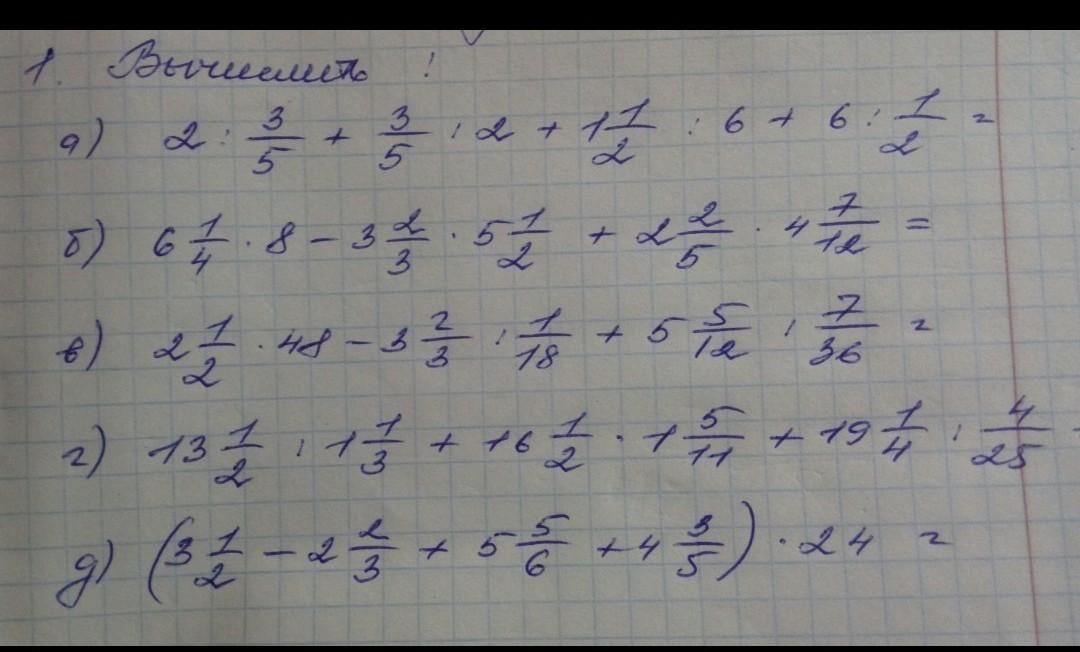 1. Вычислить !
а) 2 : 3/5 + 3/5 : 2 + 1 1/2 : 6 + 6 : 1/2 =
б) 6 1/4 · 8 - 3 2/3 · 5 1/2 + 2 2/5 · 4 7/12 =
в) 2 1/2 · 48 - 3 2/3 : 1/18 + 5 5/12 : 7/36 =
г) 13 1/2 : 1 1/3 + 16 1/2 · 1 5/11 + 19 1/4 : 4/25
д) (3 1/2 - 2 2/3 + 5 5/6 + 4 3/5) · 24 =